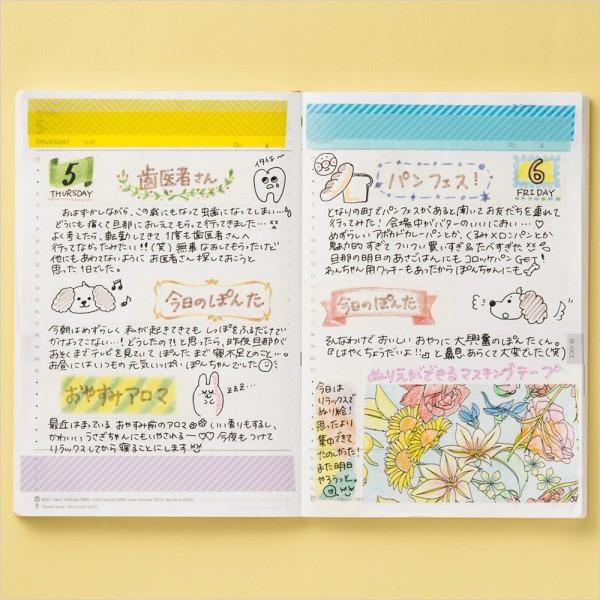 THURSDAY
5
THURSDAY
歯医者さん
イタイよ〜
おはずかしながら、この歳にもなって虫歯になってしまい…
どうにも痛くて旦那におしえてもらって行ってきました…
よく考えたら、転勤してきて1度も歯医者さんへ
行ってなかったみたい!!(笑)無事なおしてもらったけど
他にもあわてないように お医者さん探しておこうと
思った1日でした。
今日のぽんた
今朝はめずらしく 私が起きてきても しっぽをふるだけで
かけよってこない…!どうしたの!?と思ったら、昨夜旦那が
おそくまでテレビを見ていて ぽんたまで寝不足とのこと…。
お昼にはいつもの元気いっぱい・ぽんちゃんでした
おやすみアロマ
zzz…
最近はまっている おやすみ前のアロマ いい香りもするし、
かわいいうさぎちゃんにもいやされる〜♡♡ 今夜もつけて
リラックスしてから寝ることにします
パンフェス!
6
FRIDAY
となりの町でパンフェスがあると聞いてお友だちを連れて
行ってみた!会場中がバターのいいにおい…♡
めずらしいアボカドカレーパンとか、くるみメロンパンとか
魅力的すぎて ついつい買いすぎ&たべすぎた
旦那の明日のあさごはんにも コロッケパンGET!
わんちゃん用クッキーもあったからぽんちゃんにも
今日のぽんた
そんなわけで おいしいおやつに 大興奮のぽんたくん。
『はやくちょうだいよ!!』と鼻息あらくて大変でした(笑)
ぬりえができるマスキングテープ
今日は
リラックスで
ぬり絵!
思ったより
集中できて
たのしかった!
また明日
やろうっと。